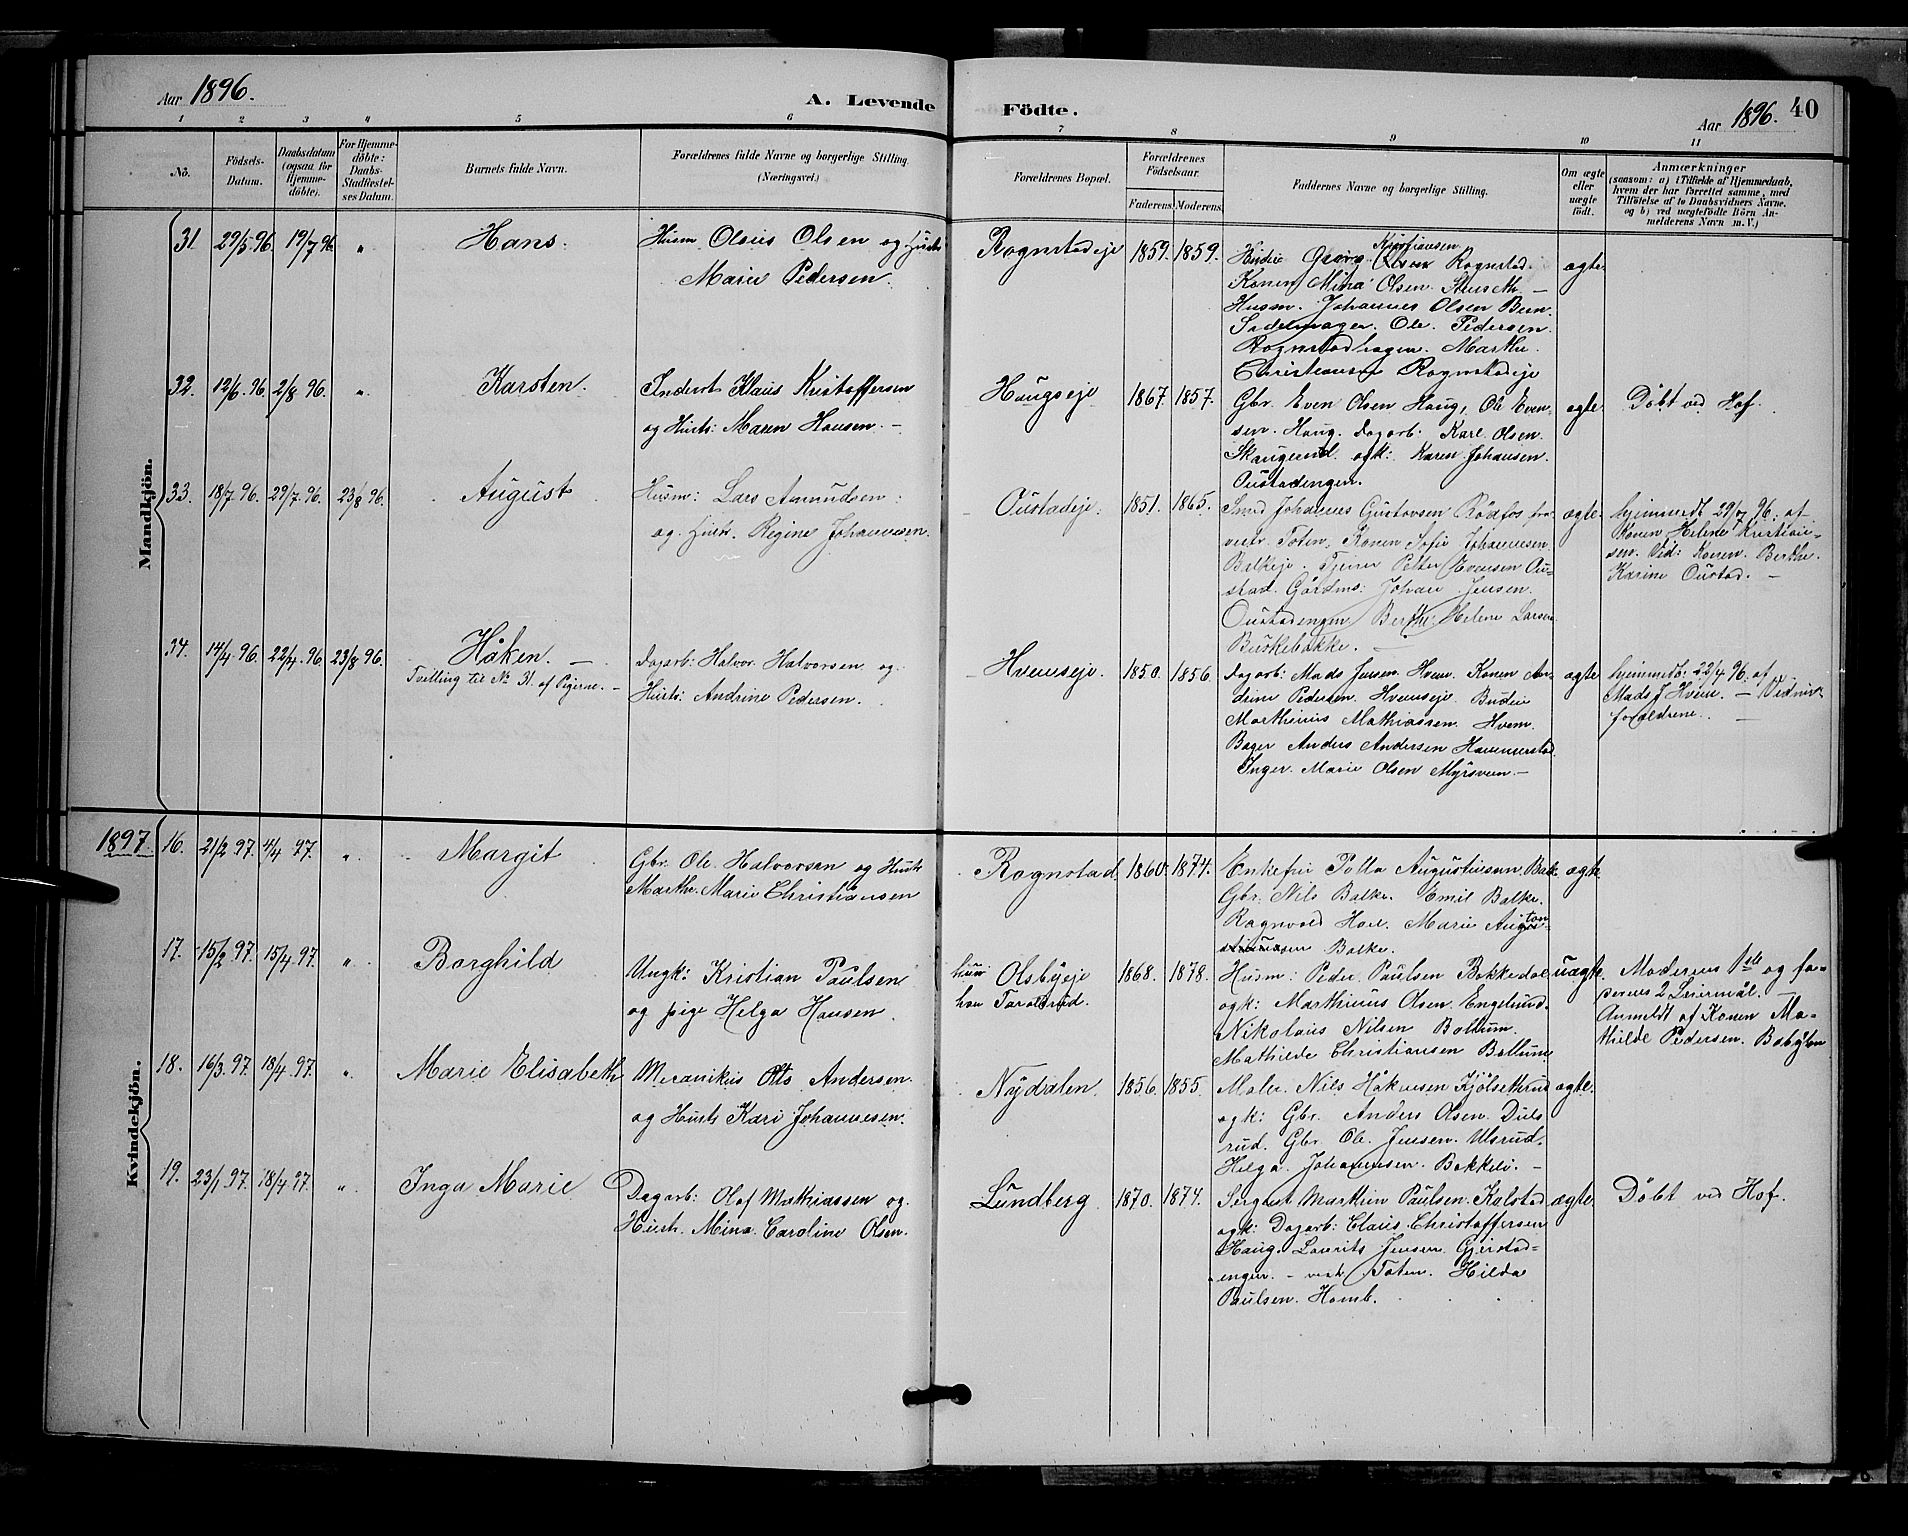 Aar 1896.
A. Levende
Födte.
Aar 1896.
40
1 2 3 4 5 6 7 8 9 10 11
No.
Födsels-
Datum.
Daabsdatum
(ogsaa for
Hjemme-
döbte).
For Hjemme-
döbte:
Daabs-
Stadfæstel-
ses Datum.
Barnets fulde Navn.
Forældrenes fulde Navne og borgerlige Stilling.
(Næringsvei.)
Forældrenes Bopæl.
Forældrenes
Födselsaar.
Faderens.
Moderens.
Faddernes Navne og borgerlige Stilling.
Om ægte
eller
uægte
födt.
Anmærkninger
(saasom: a) i Tilfælde af Hjemmedaab,
hvem der har forrettet samme, med
Tilföielse af to Daabsvidners Navne,
og b) ved uægtefödte Börn An-
melderens Navn m. V.)
Mandkjön.
31. 29/5 96. 19/7 96. "
Hans.
Husm. Olaus Olsen og Hustr.
Marie Pedersen.
Rognstadeje
1859. 1859.
Kristiansen
Georg Olsen Rognstad.
Konen Mina Olsen Stuseth. —
Husm. Johannes Olsen
Sadelmager. Ole. Pedersen.
Rognstadhagen. Marthe.
Christiansen Rognstadeje
ægte.
32. 12/6. 96. 2/8 96. "
Karsten.
Inderst Klaus Kristoffersen
og Hustr: Maren Hansen. —
Haugseje
1867. 1857.
Gbr. Even Olsen Haug, Ole Even-
sen. Haug. Dagarb. Karl. Olsen.
Skaugerud. ogk: Karen Johansen.
Oustadengen.
ægte.
Döbt ved Hof.
33. 18/7. 96. 29/7. 96. 23/8 96.
August
Husm: Lars Amundsen:
og. Hustr. Regine Johannesen.
Oustadeje.
1851. 1865.
Smed Johannes Gustavsen Rödfos
vestr. Toten, Konen Sofie Johannesen
Balkeje. Tjener Peter Evensen Ou-
stad. Gårdms: Johan Jensen.
Oustadengen Berthe Helene Larsen
Buskebakke. —
ægte.
hjemmedt 29/7 96. af
Konen Helene Kristian-
sen. Vid: Konen. Berthe.
Karine Oustad. —
34. 14/4. 96. 22/4. 96. 23/8 96.
Håken. —
Tvilling til No 31. af Pigerne. —
Dagarb: Halvor. Halvorsen og
Hustr: Andrine Pedersen.
Hvemseje.
1850. 1856.
Dagarb: Mads Jensen. Hvem. Konen An-
Pedersen. Hvemseje. Budeie
Marthinus Mathiassen. Hvem.
Bager Anders Andersen Hammerstad.
Inger. Marie Olsen Myrsveen —
ægte
hjemmedt: 22/4 96. af
Mads J Hvem. — Vidner
forældrene. —
1897.
Kvindekjön.
16. 21/2 97. 4/4 97. "
Margit
Gbr. Ole. Halvorsen og Hustr
Marthe. Marie Christiansen
Rognstad
1860. 1874.
Enkefru Polla Augustinsen. Balke
Gbr. Nils Balke. Emil Balke.
Ragnvold Hoel. Marie August
Balke.
ægte
17. 15/2 97. 15/4. 97. "
Borghild
Ungk: Kristian Paulsen
og pige Helga Hansen.
hun Olsbyeje
han Taraldrud.
1868. 1878.
Husm: Peder Paulsen Bakkedal
ogk: Marthinus Olsen. Engelund.
Nikolaus Nilsen Bollum.
Mathilde Christiansen Bollum
uægte
Moderens 1ste og fa-
derens 2 Leiermål.
Anmeldt af Konen Ma-
thilde Pedersen. Babylon
18. 16/3. 97. 18/4. 97. "
Marie Elisabeth
Mecanikus Ols Andersen.
og Hustr. Kari Johannesen.
Nydalen.
1856. 1855.
Maler. Nils Håkensen Kjölsethrud
ogk: Gbr. Anders Olsen. Duls
rud. Gbr. Ole. Jensen. Ulsrud.
Helga. Johannesen. Bakkeli. —
ægte.
19. 23/1 97. 18/4 97. "
Inga Marie
Dagarb: Olaf Mathiassen og.
Hustr. Mina. Caroline Olsen.
Lundberg
1870. 1874.
Sergeant Marthin Paulsen. Kalstad
ogk: Dagarb: Claus. Christoffersen
Haug. Laurits Jensen. Gjerstad-
engen. — vestr Toten. Hilda
Paulsen. Homb.
ægte.
Döbt ved Hof.